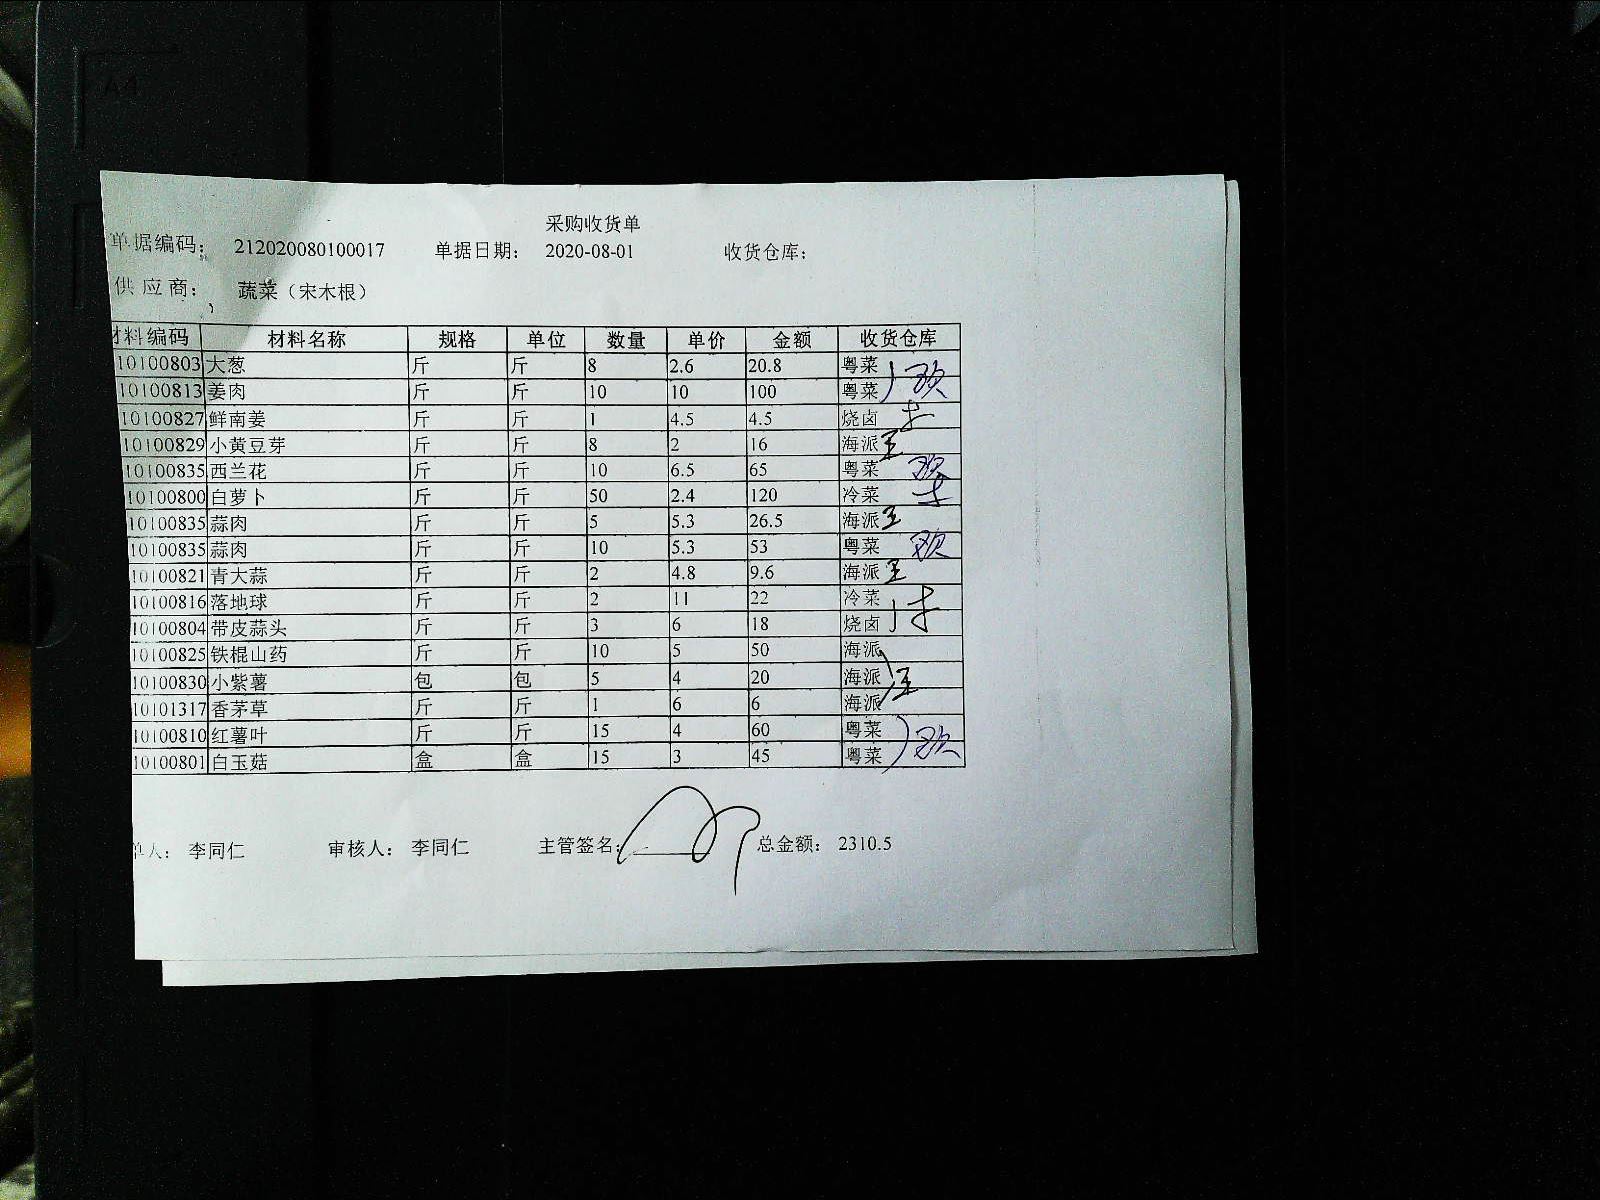 采购收货单
单据编码: 212020080100017 单据日期: 2020-08-01 收货仓库:
供应商: 蔬菜（宋木根）
材料编码 材料名称 规格 单位 数量 单价 金额 收货仓库
10100803 大葱 斤 斤 8 2.6 20.8 粤菜
10100813 姜肉 斤 斤 10 10 100 粤菜
10100827 鲜南姜 斤 斤 1 4.5 4.5 烧卤
10100829 小黄豆芽 斤 斤 8 2 16 海派 王
10100835 西兰花 斤 斤 10 6.5 65 粤菜
10100800 白萝卜 斤 斤 50 2.4 120 冷菜
10100835 蒜肉 斤 斤 5 5.3 26.5 海派 王
10100835 蒜肉 斤 斤 10 5.3 53 粤菜
10100821 青大蒜 斤 斤 2 4.8 9.6 海派 王
10100816 落地球 斤 斤 2 11 22 冷菜
10100804 带皮蒜头 斤 斤 3 6 18 烧卤
10100825 铁棍山药 斤 斤 10 5 50 海派
10100830 小紫薯 包 包 5 4 20 海派 王
10101317 香茅草 斤 斤 1 6 6 海派
10100810 红薯叶 斤 斤 15 4 60 粤菜
10100801 白玉菇 盒 盒 15 3 45 粤菜
单人: 李同仁 审核人: 李同仁 主管签名: 总金额: 2310.5